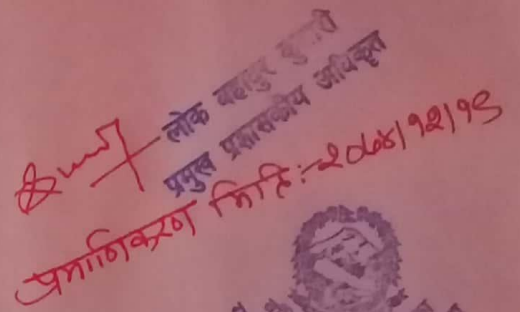 लोक बहादुर
प्रमुख प्रशासकीय अधिकृत
प्रमाणिकरण मिति:-२०७४/१२/१९